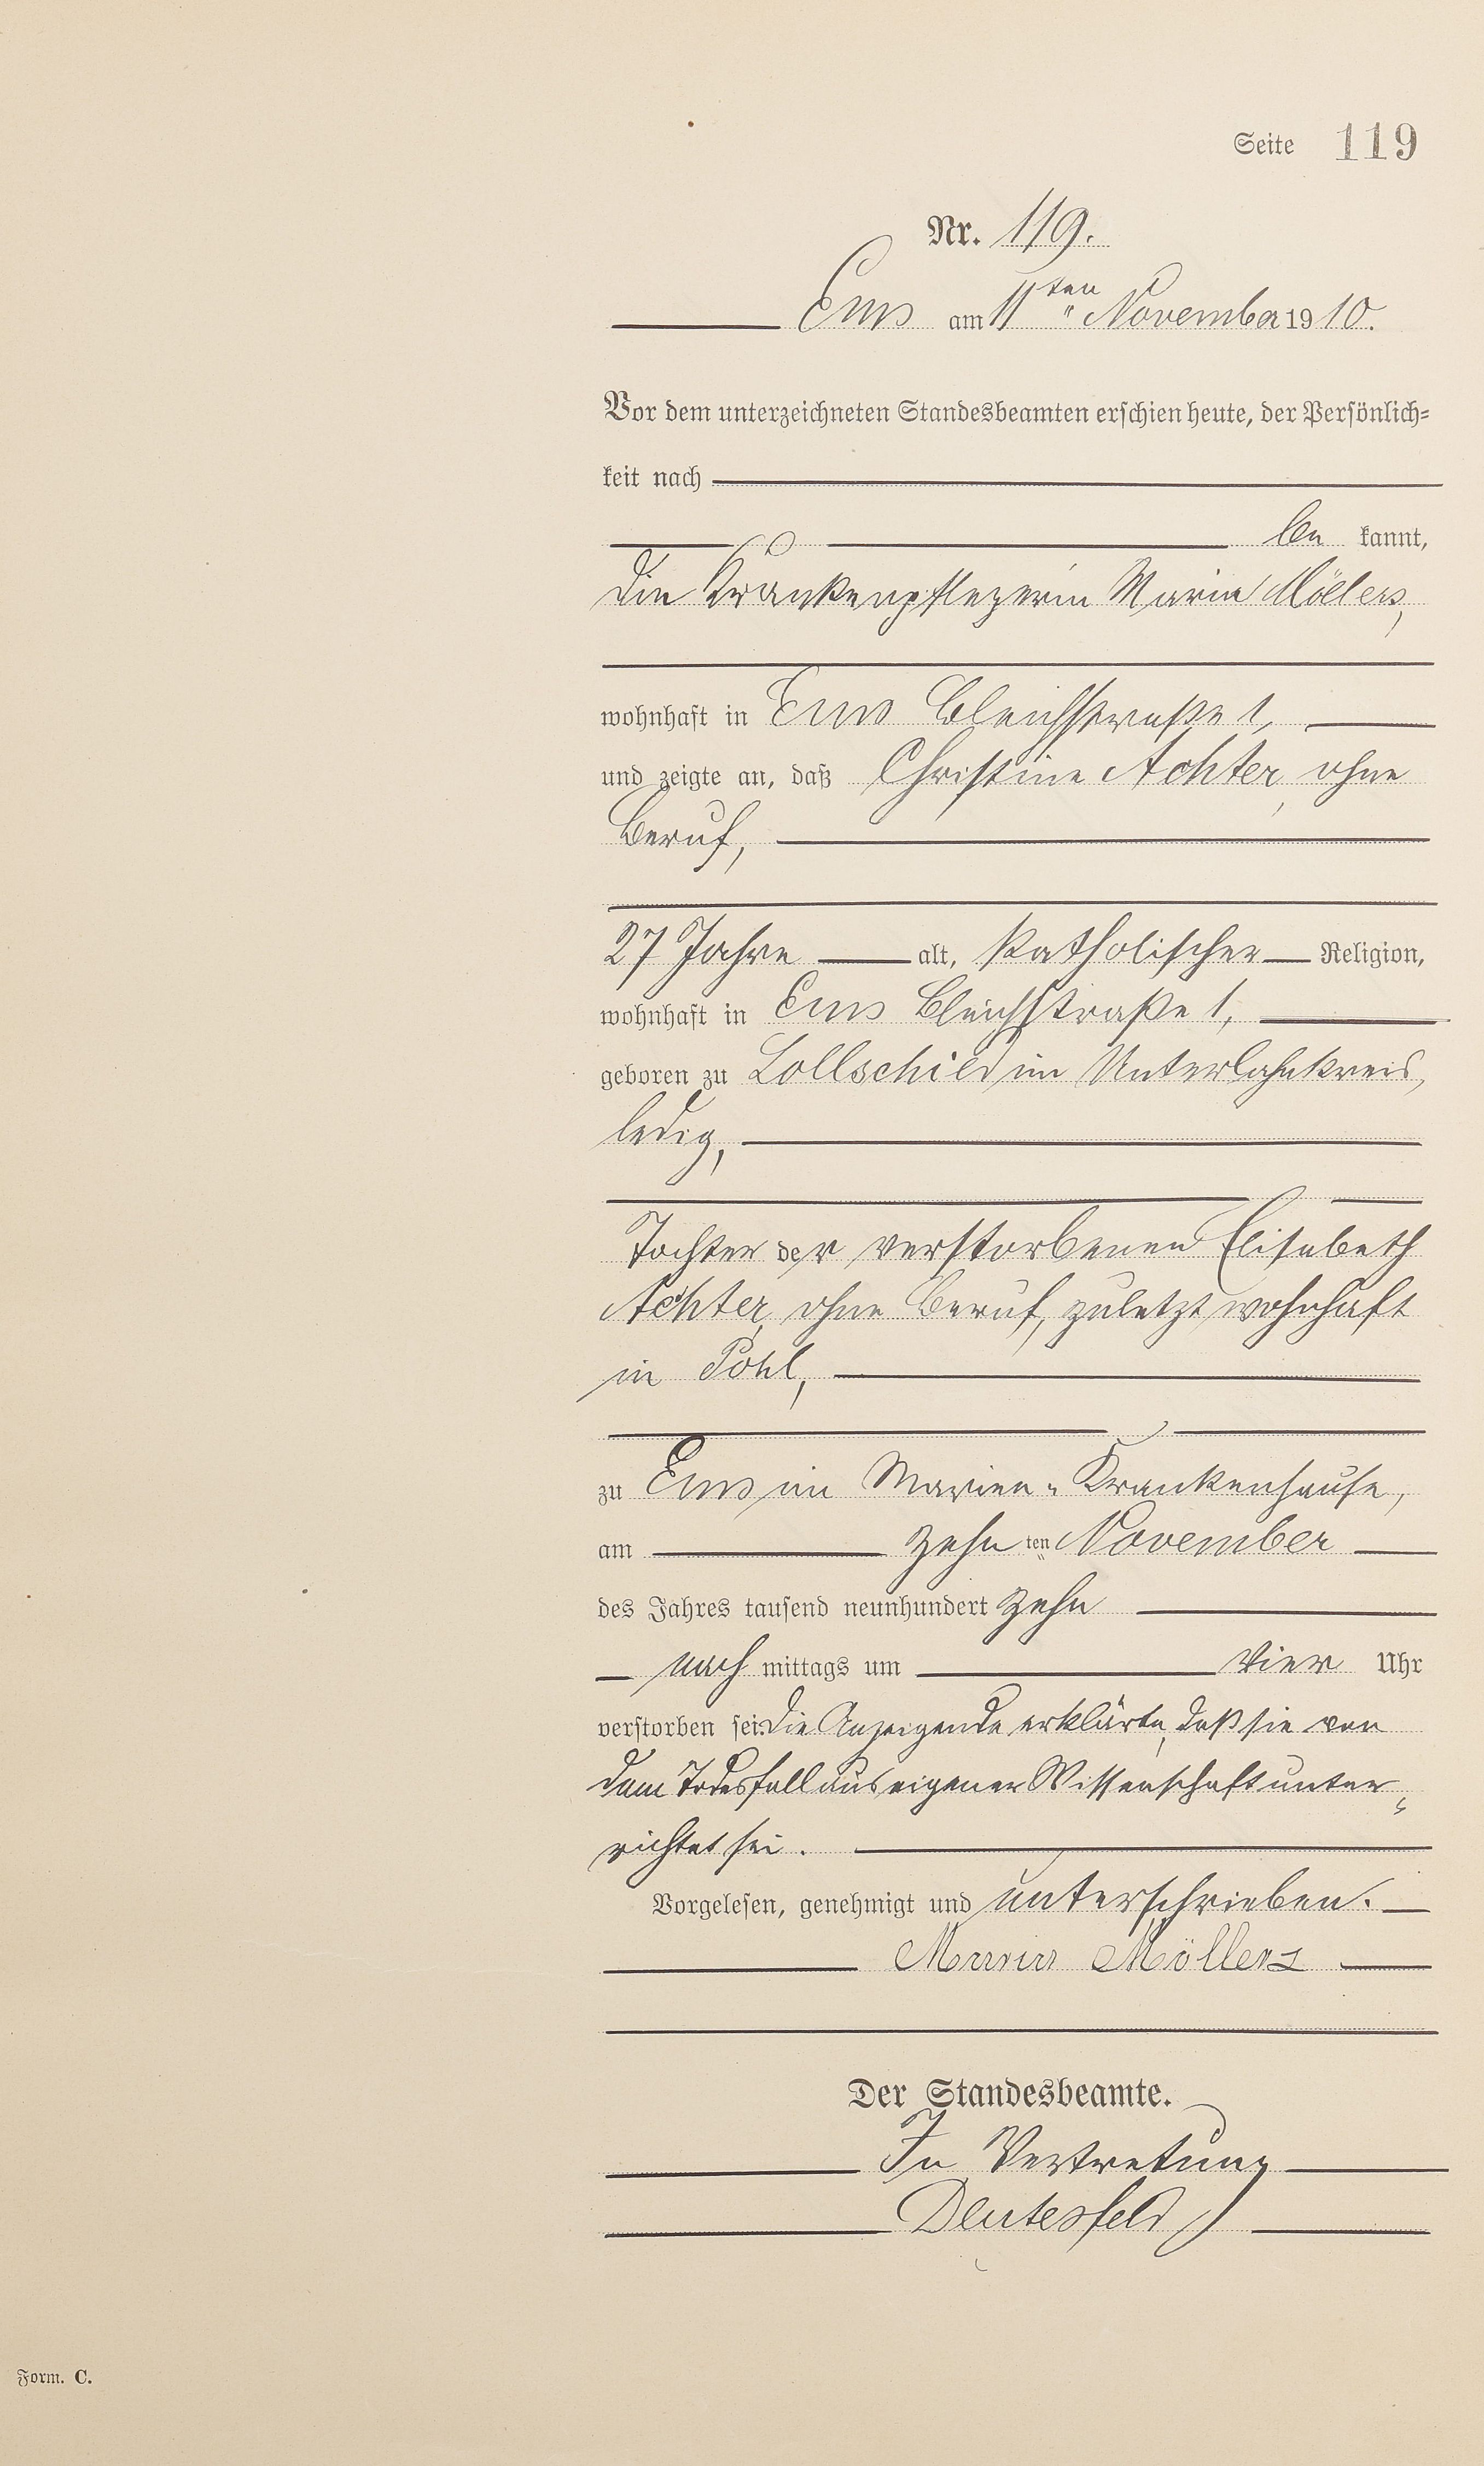 Seite 119
Nr. 119.
Ems am 11ten November 1910.
Vor dem unterzeichneten Standesbeamten erschien heute, der Persönlich-
keit nach
be kannt,
die Krankenpflegerin Maria Möllers,
wohnhaft in Ems Bleichstraße 1,
und zeigte an, daß Christine Achter, ohne
Beruf,
27 Jahre alt, katholischer Religion,
wohnhaft in Ems Bleichstraße 1,
geboren zu Lollschied im Unterlahnkreis,
ledig,
Tochter der verstorbenen Elisabeth
Achter, ohne Beruf, zuletzt wohnhaft
in Pohl,
zu Ems im Marien-Krankenhause,
am zehn ten November
des Jahres tausend neunhundert zehn
nach mittags um vier Uhr
verstorben sei. Die Anzeigende erklärte, daß sie von
dem Todesfall aus eigener Wissenschaft unter-
richtet sei.
Vorgelesen, genehmigt und unterschrieben.
Maria Möllers
Der Standesbeamte.
In Vertretung
Deutesfeld
Form. C.